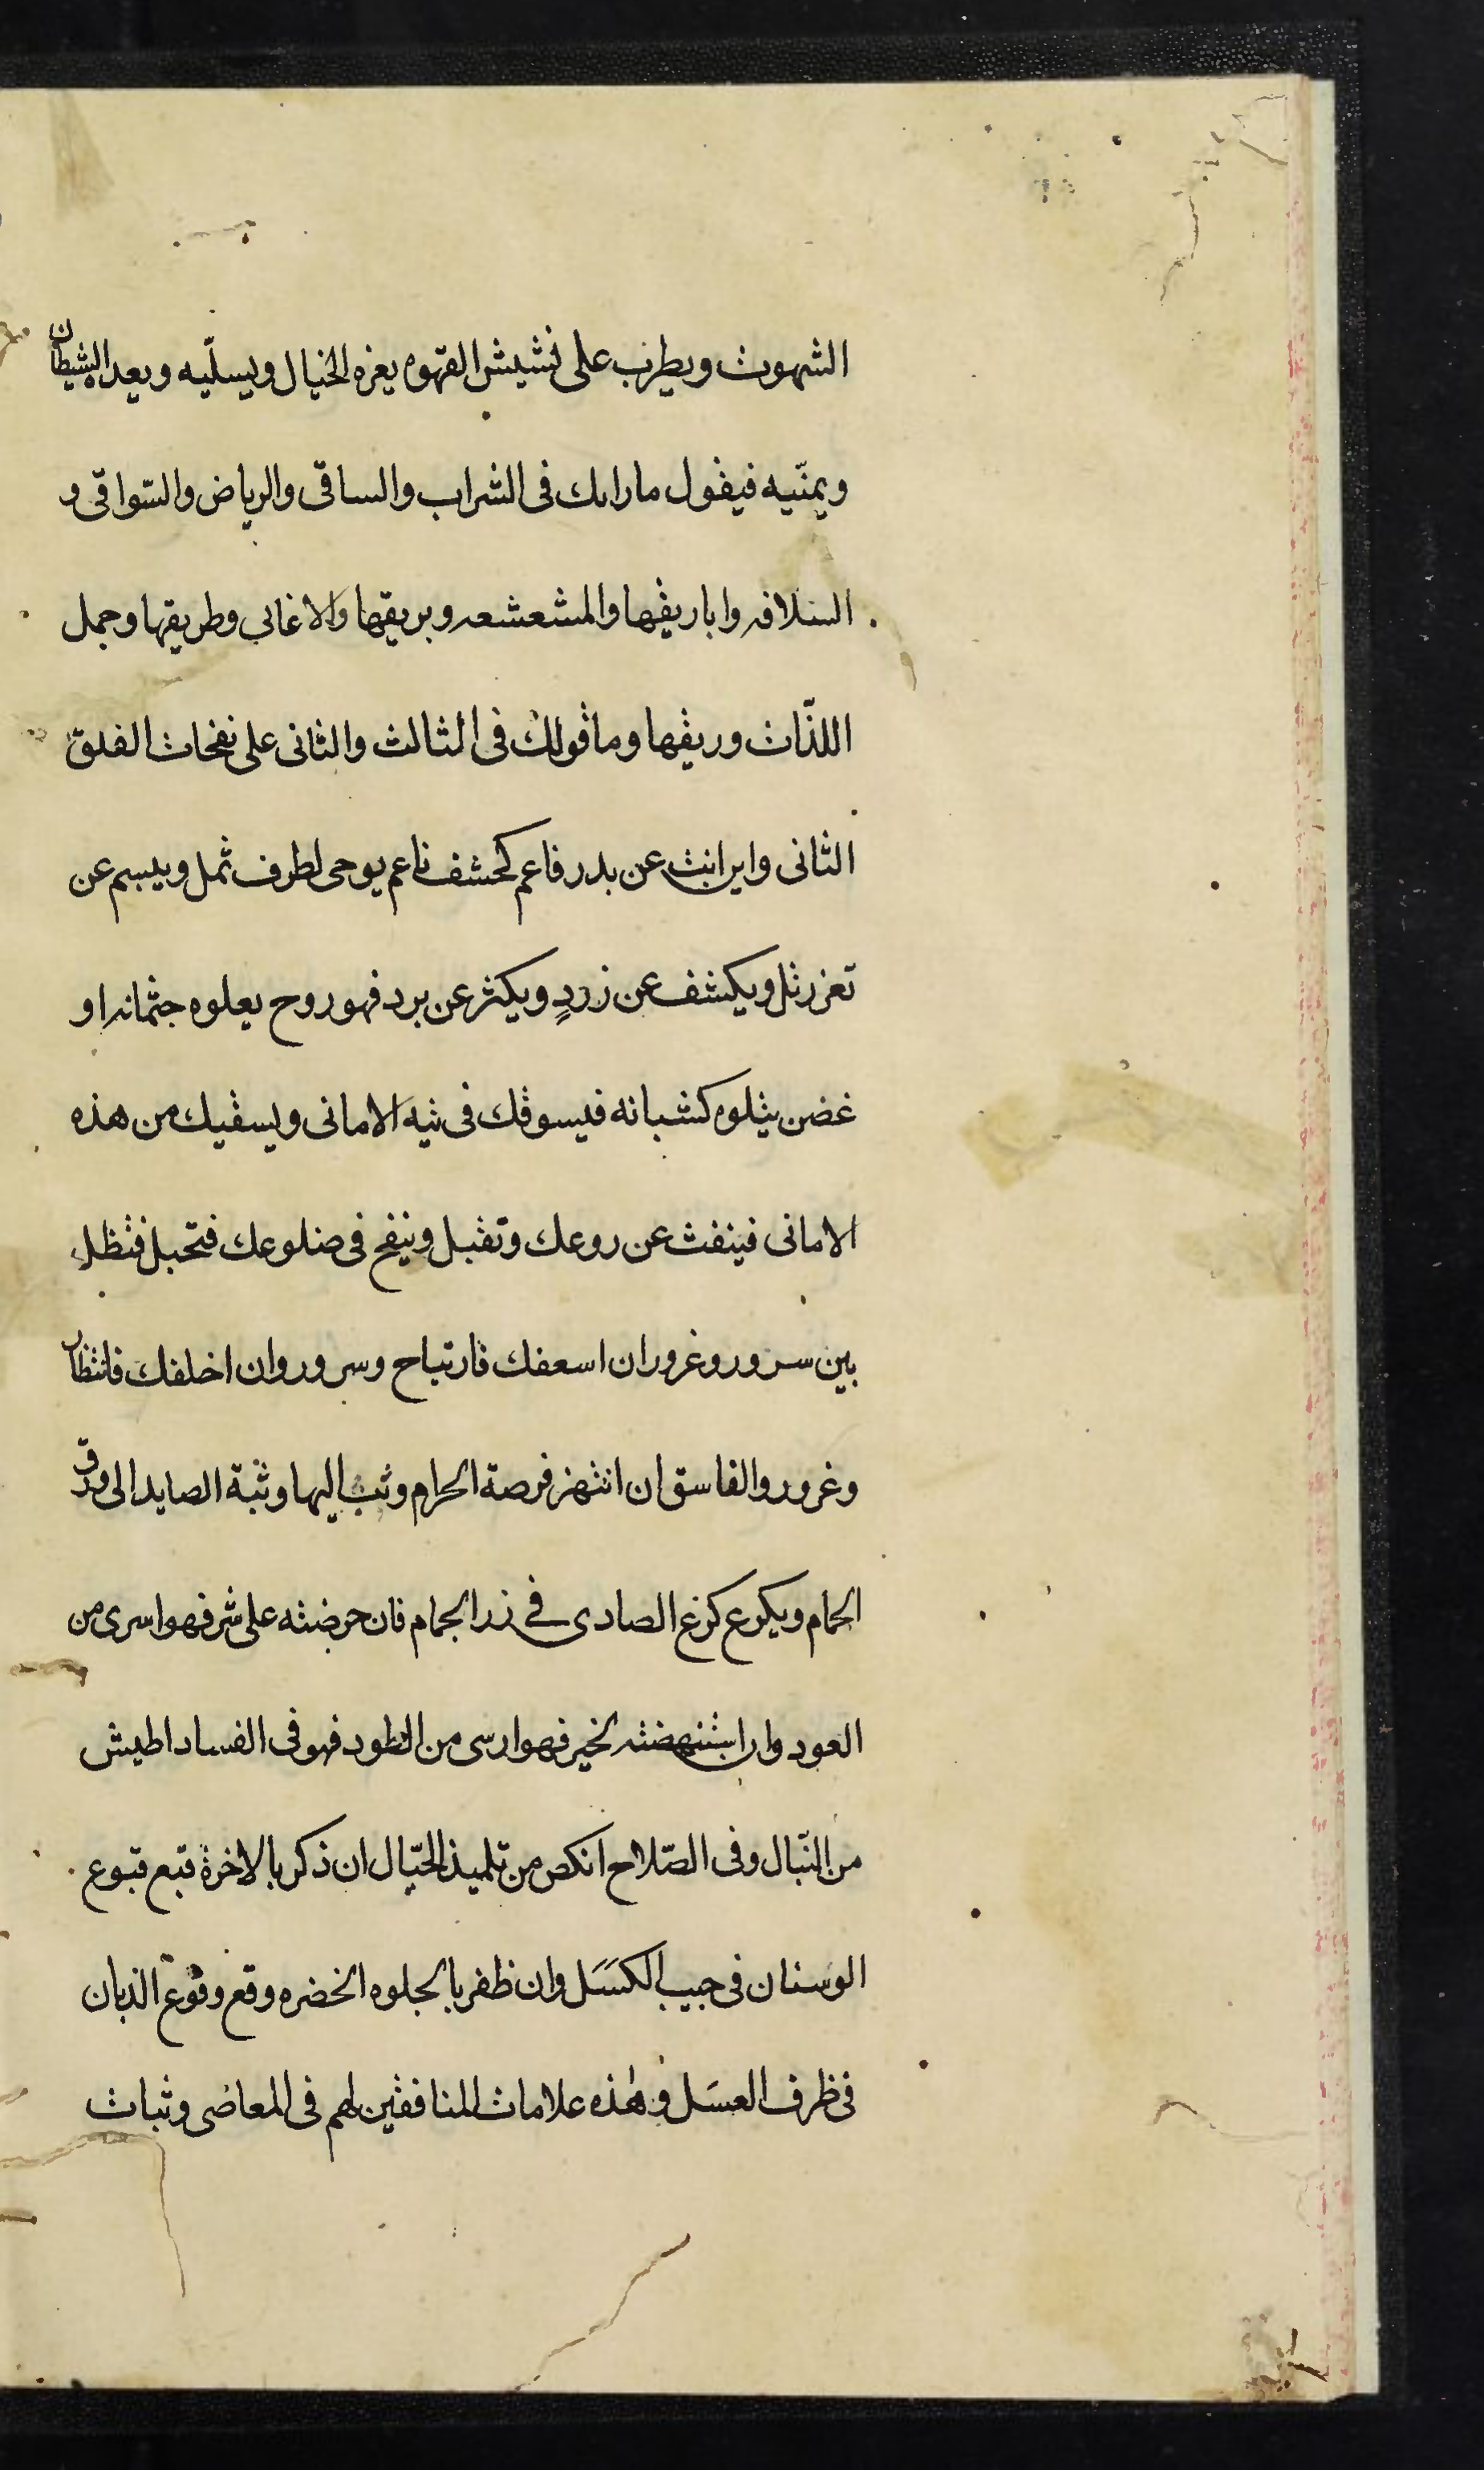 الشهوت ويطرب على نشيش القهوه يغره الخيال ويسلّيه ويعده الشيطان
ويمنّيه فيقول ما رايك فى الشراب والساقى والرياض والسّواقى و
السلافه واباريقها والمشعشعه وبريقها والاغانى وطريقها وجمل
اللذّات وريقها وما قولك فى الثالث والثانى على نفحات الفلق
الثانى واين انت عن بدر فاعم كخشف ناعم يوحى لطرف ثمل ويبسم عن
ثغر رتل ويكشف عن زردٍ ويكثر عن برد فهو روح يعلوه جثمانه او
غصن يتلوه كشبانه فيسوقك فى تيه الامانى ويسقيك من هذه
الامانى فينفث عن روعك وتقبل وينفح فى ضلوعك فتحبل فتظل
بين سرور وغرور ان اسعفك فارتياح وسرور وان اخلفك فانتظار
وغرور والفاسق ان انتهز فرصة الحرام وثب اليها وثبة الصايد الى ورق
الحمام ويكرع كرع الصادى فى زر الجمام فان حرضته على شر فهو اسرى من
العود وان استنهضته لخير فهو ارسى من الطود فهو فى الفساد اطيش
من النّبال وفى الصّلاح انكص من تلميذ الحبّال ان ذكر بالاخرة قبع قبوع
الوسنان فى جيب الكسل وان ظفر بالجلوه الخضره وقع وقوع الذبان
فى ظرف العسل و هذه علامات المنافقين لهم فى المعاصى وثبات